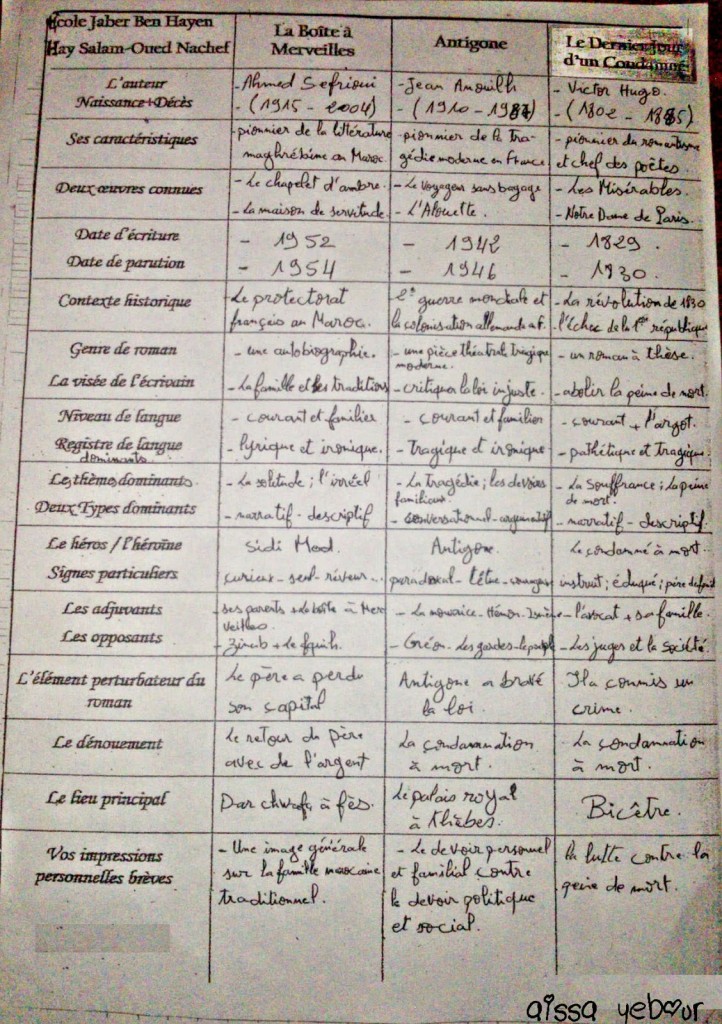 École Jaber Ben Hayen
Hay Salam-Oued Nachef
La Boîte à
Merveilles
Antigone
Le Dernier Jour
d'un Condamné
L'auteur
Naissance+Décès
- Ahmed Sefrioui
- (1915 - 2004)
- Jean Anouilh
- (1910 - 1987)
- Victor Hugo.
- (1802 - 1885)
Ses caractéristiques
- pionnier de la littérature
maghrébine au Maroc.
- pionnier de la tra-
gédie moderne en France
- pionnier du romantisme
et chef des poètes.
Deux œuvres connues
- Le chapelet d'ambre.
- La maison de servitude.
- Le voyageur sans bagage
- L'Alouette.
- Les Misérables.
- Notre Dame de Paris.
Date d'écriture
Date de parution
- 1952
- 1954
- 1942
- 1946
- 1829.
- 1830.
Contexte historique
Le protectorat
français au Maroc.
2e guerre mondiale et
la colonisation allemande a F.
- La révolution de 1830
l'échec de la 1ère république
Genre de roman
La visée de l'écrivain
- une autobiographie.
- La famille et les traditions
- une pièce théatrale tragique
moderne.
- critiquer la loi injuste.
- un roman à thèse.
- abolir la peine de mort.
Niveau de langue
Registre de langue
dominants
- courant et familier
- lyrique et ironique.
- courant et familier
- Tragique et ironique
- courant + l'argot.
- pathétique et tragique.
Les thème dominants
Deux Types dominants
- La solitude ; l'irréel
- narratif - descriptif
- La Tragédie ; les devoirs
familiaux.
- conversationnel - argumentatif
- La Souffrance ; la peine
de mort.
- narratif - descriptif.
Le héros / l'héroïne
Signes particuliers
Sidi Med.
curieux - seul - rêveur...
Antigone.
paradoxal - têtue - courageuse
Le condamné à mort.
instruit ; éduqué ; père de famille
Les adjuvants
Les opposants
ses parents + la boîte à Mer
veilles
- Zineb + Le fquih.
- La nourrice - Hémon - Ismène
- Créon - Les gardes - le peuple
- l'avocat + sa famille.
- Les juges et la Société
L'élément perturbateur du
roman
Le père a perdu
son capital
Antigone a bravé
la loi.
Il a commis un
crime.
Le dénouement
Le retour du père
avec de l'argent
La condamnation
à mort.
La condamnation
à mort.
Le lieu principal
Dar chwafa à fès.
Le palais royal
à thièbes.
Bicêtre.
Vos impressions
personnelles brèves
- Une image générale
sur la famille marocaine
traditionnel.
- Le devoir personnel
et familial contre
le devoir politique
et social.
la lutte contre la
peine de mort.
aissa yebour